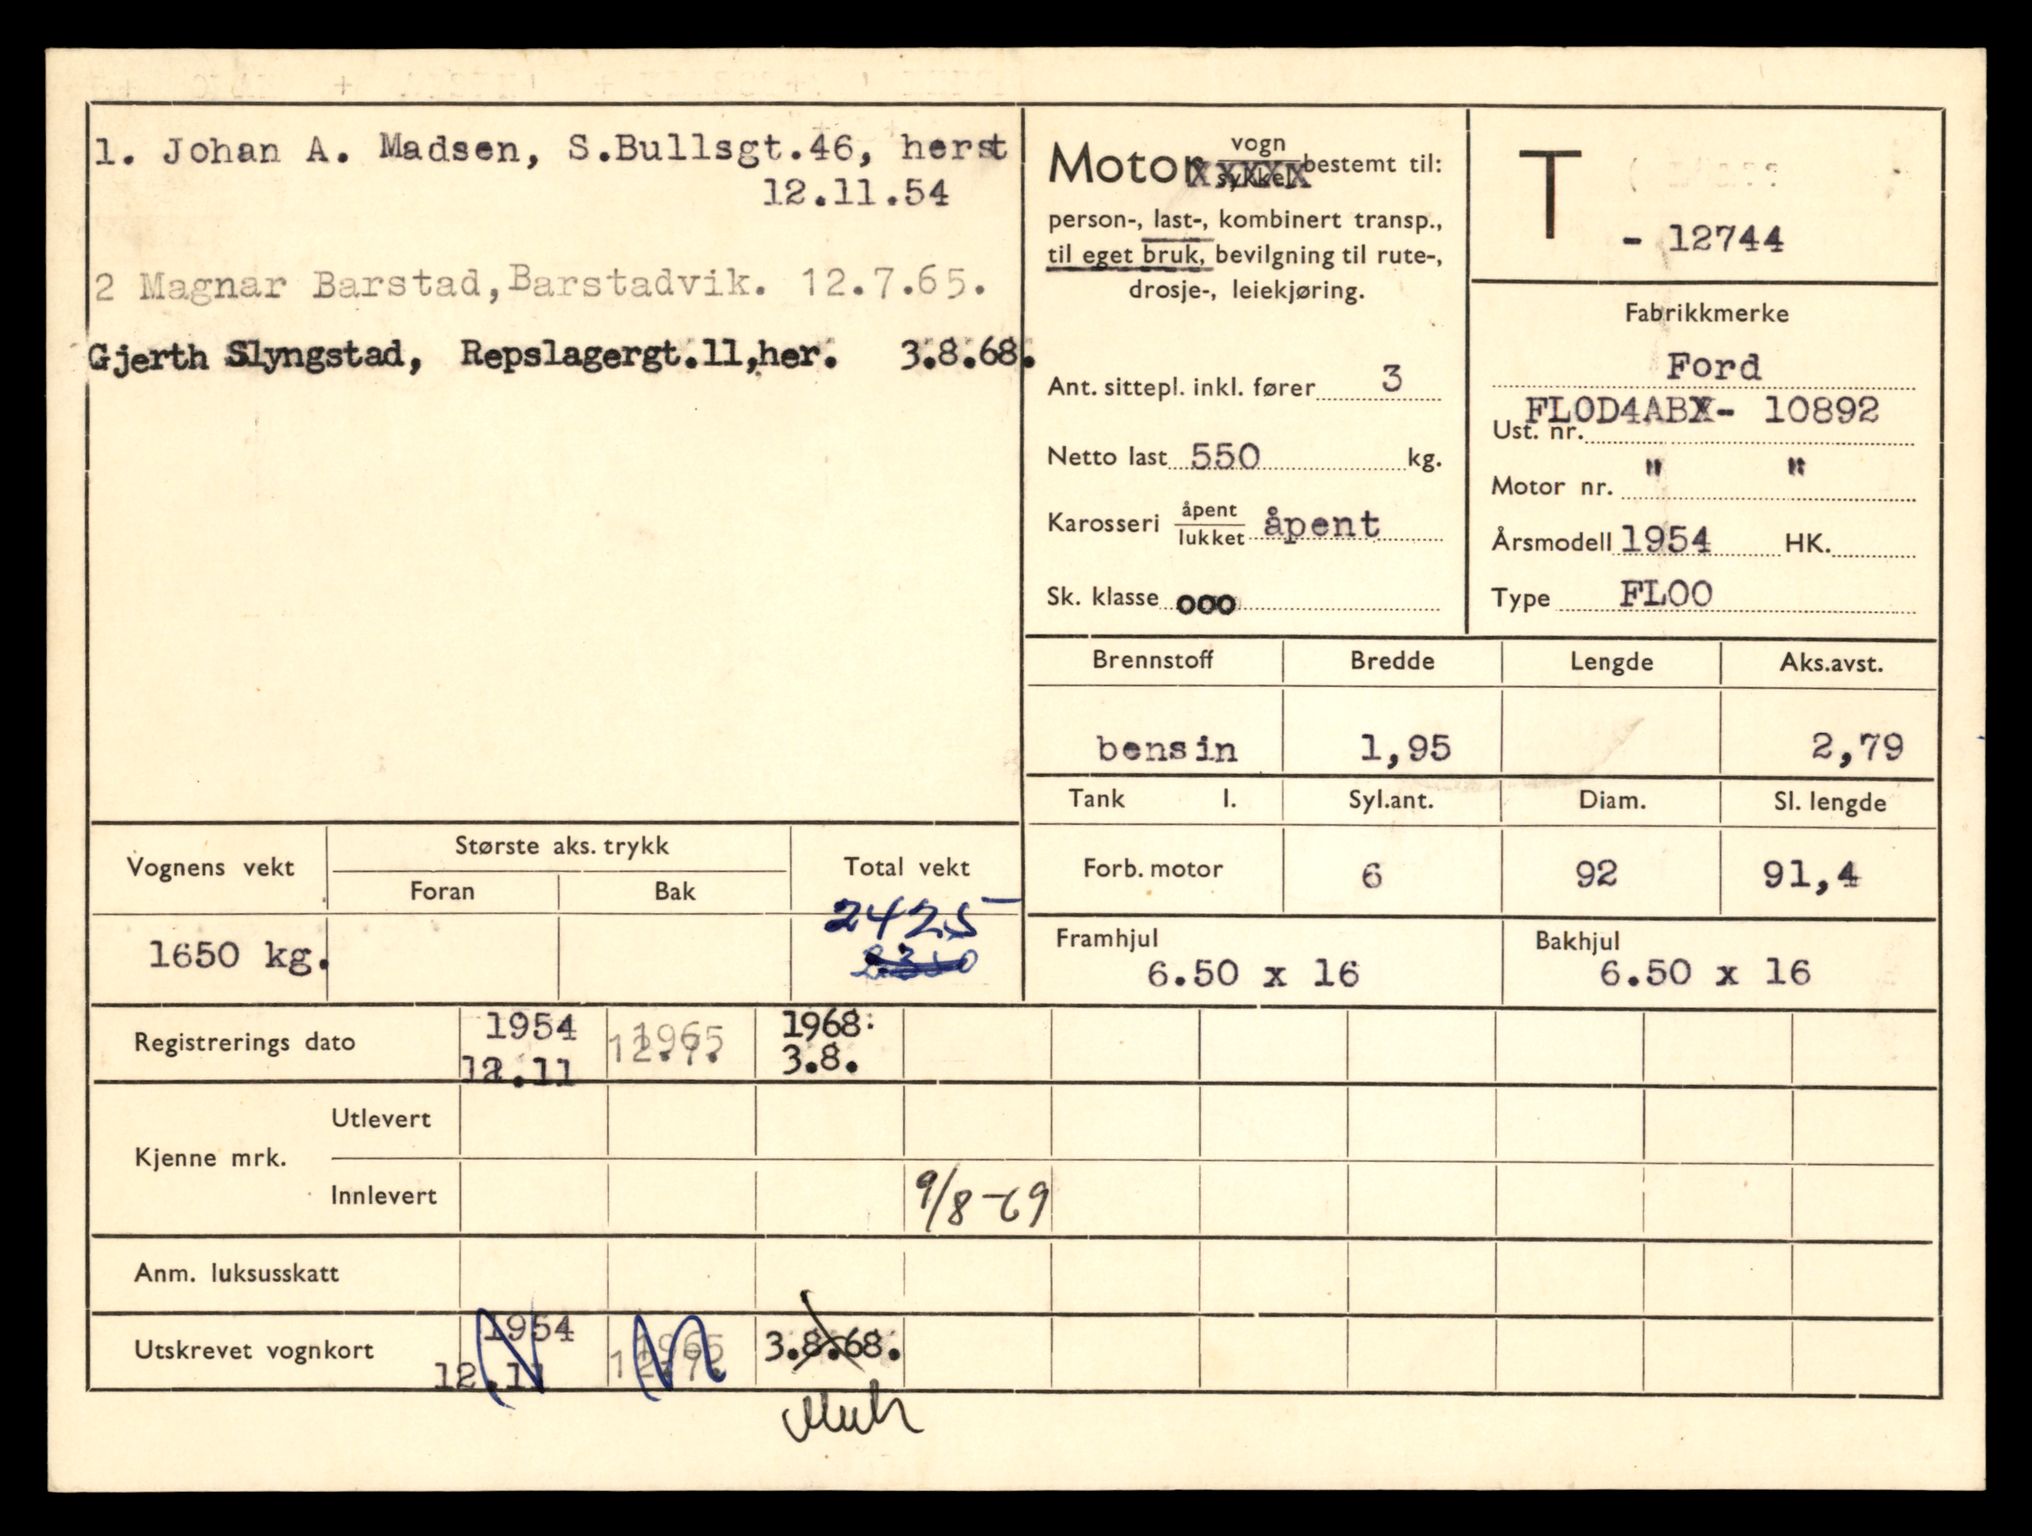 1. Johan A. Madsen, S.Bullsgt.46, herst
12.11.54
2 Magnar Barstad, Barstadvik. 12.7.65.
Gjerth Slyngstad, Repslagergt.11,her. 3.8.68.
Motor vogn sykkel bestemt til:
person-, last-, kombinert transp.,
til eget bruk, bevilgning til rute-,
drosje-, leiekjøring.
Ant. sittepl. inkl. fører 3
Netto last 550 kg.
Karosseri åpent lukket åpent
Sk. klasse ooo
T - 12744
Fabrikkmerke
Ford
FLOD4ABX- 10892
Ust. nr.
Motor nr. " "
Årsmodell 1954 HK.
Type FLOO
Brennstoff Bredde Lengde Aks.avst.
bensin 1,95 2,79
Tank l. Syl.ant. Diam. Sl. lengde
Forb. motor 6 92 91,4
Framhjul Bakhjul
6.50 x 16 6.50 x 16
Vognens vekt Største aks. trykk Total vekt
Foran Bak
2425
1650 kg. 2350
Registrerings dato 1954 1965 1968:
12.11 12.7. 3.8.
Kjenne mrk.
Utlevert
Innlevert 9/8-69
Anm. luksusskatt
Utskrevet vognkort 1954 1965 3.8.68.
12.11 12.7.